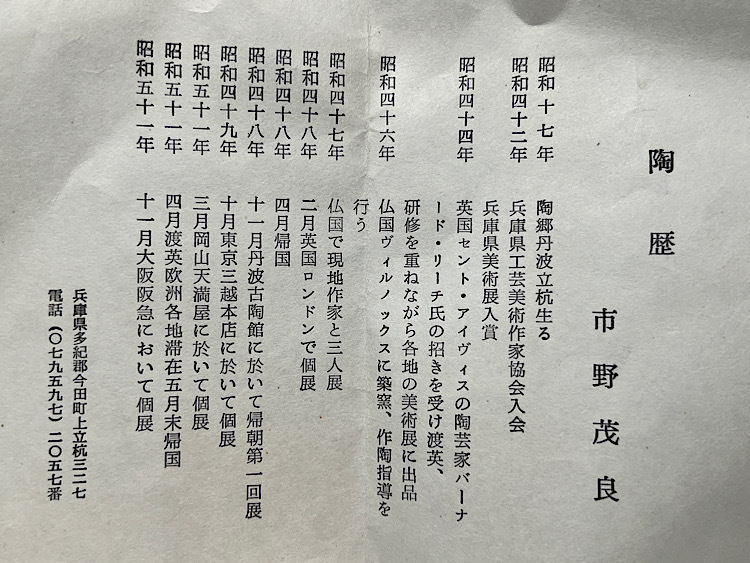 陶歴
市野茂良
昭和十七年 陶郷丹波立杭生る
昭和四十二年 兵庫県工芸美術作家協会入会
兵庫県美術展入賞
昭和四十四年 英国セント・アイヴィスの陶芸家バーナ
ード・リーチ氏の招きを受け渡英、
研修を重ねながら各地の美術展に出品
昭和四十六年 仏国ヴィルノックスに築窯、作陶指導を
行う
昭和四十七年 仏国で現地作家と三人展
昭和四十八年 二月英国ロンドンで個展
昭和四十八年 四月帰国
昭和四十八年 十一月丹波古陶館に於いて帰朝第一回展
昭和四十九年 十月東京三越本店に於いて個展
昭和五十一年 三月岡山天満屋に於いて個展
昭和五十一年 四月渡英欧洲各地滞在五月末帰国
昭和五十一年 十一月大阪阪急において個展
兵庫県多紀郡今田町上立杭三二七
電話(〇七九五九七)二〇五七番